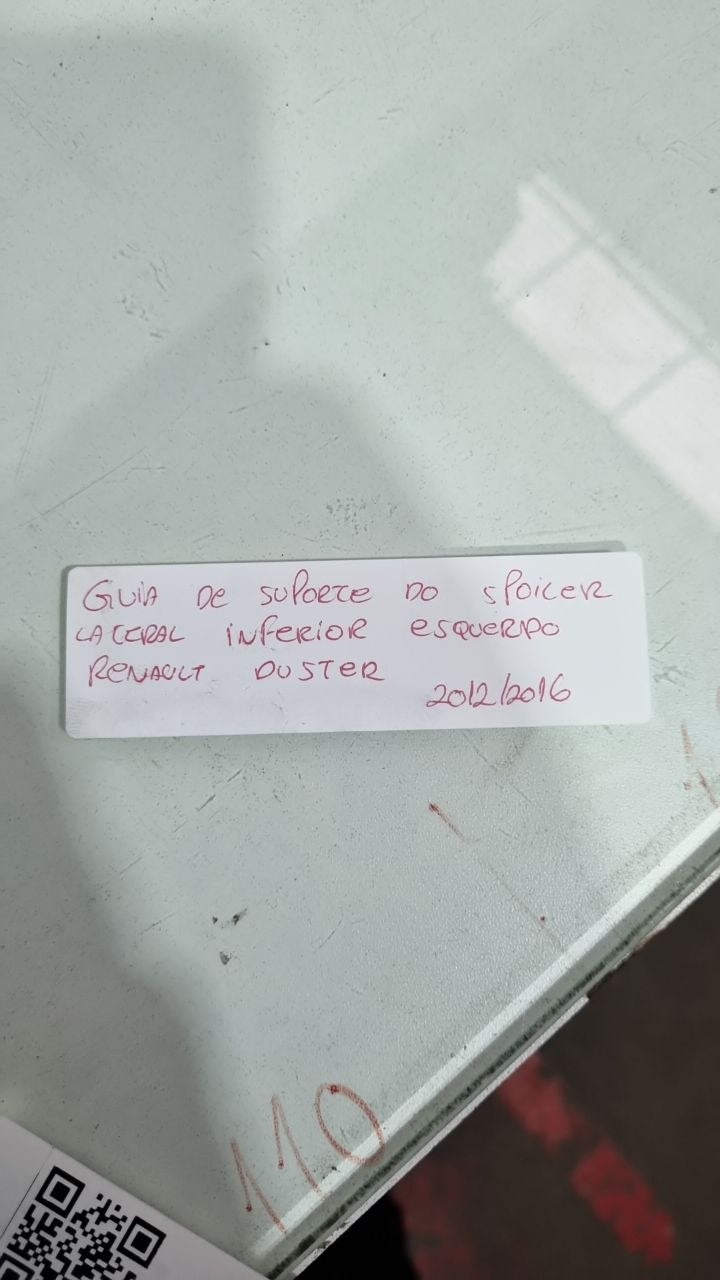 GUIA DE SUPORTE DO SPOILER
LATERAL INFERIOR ESQUERDO
RENAULT DUSTER
2012/2016
110